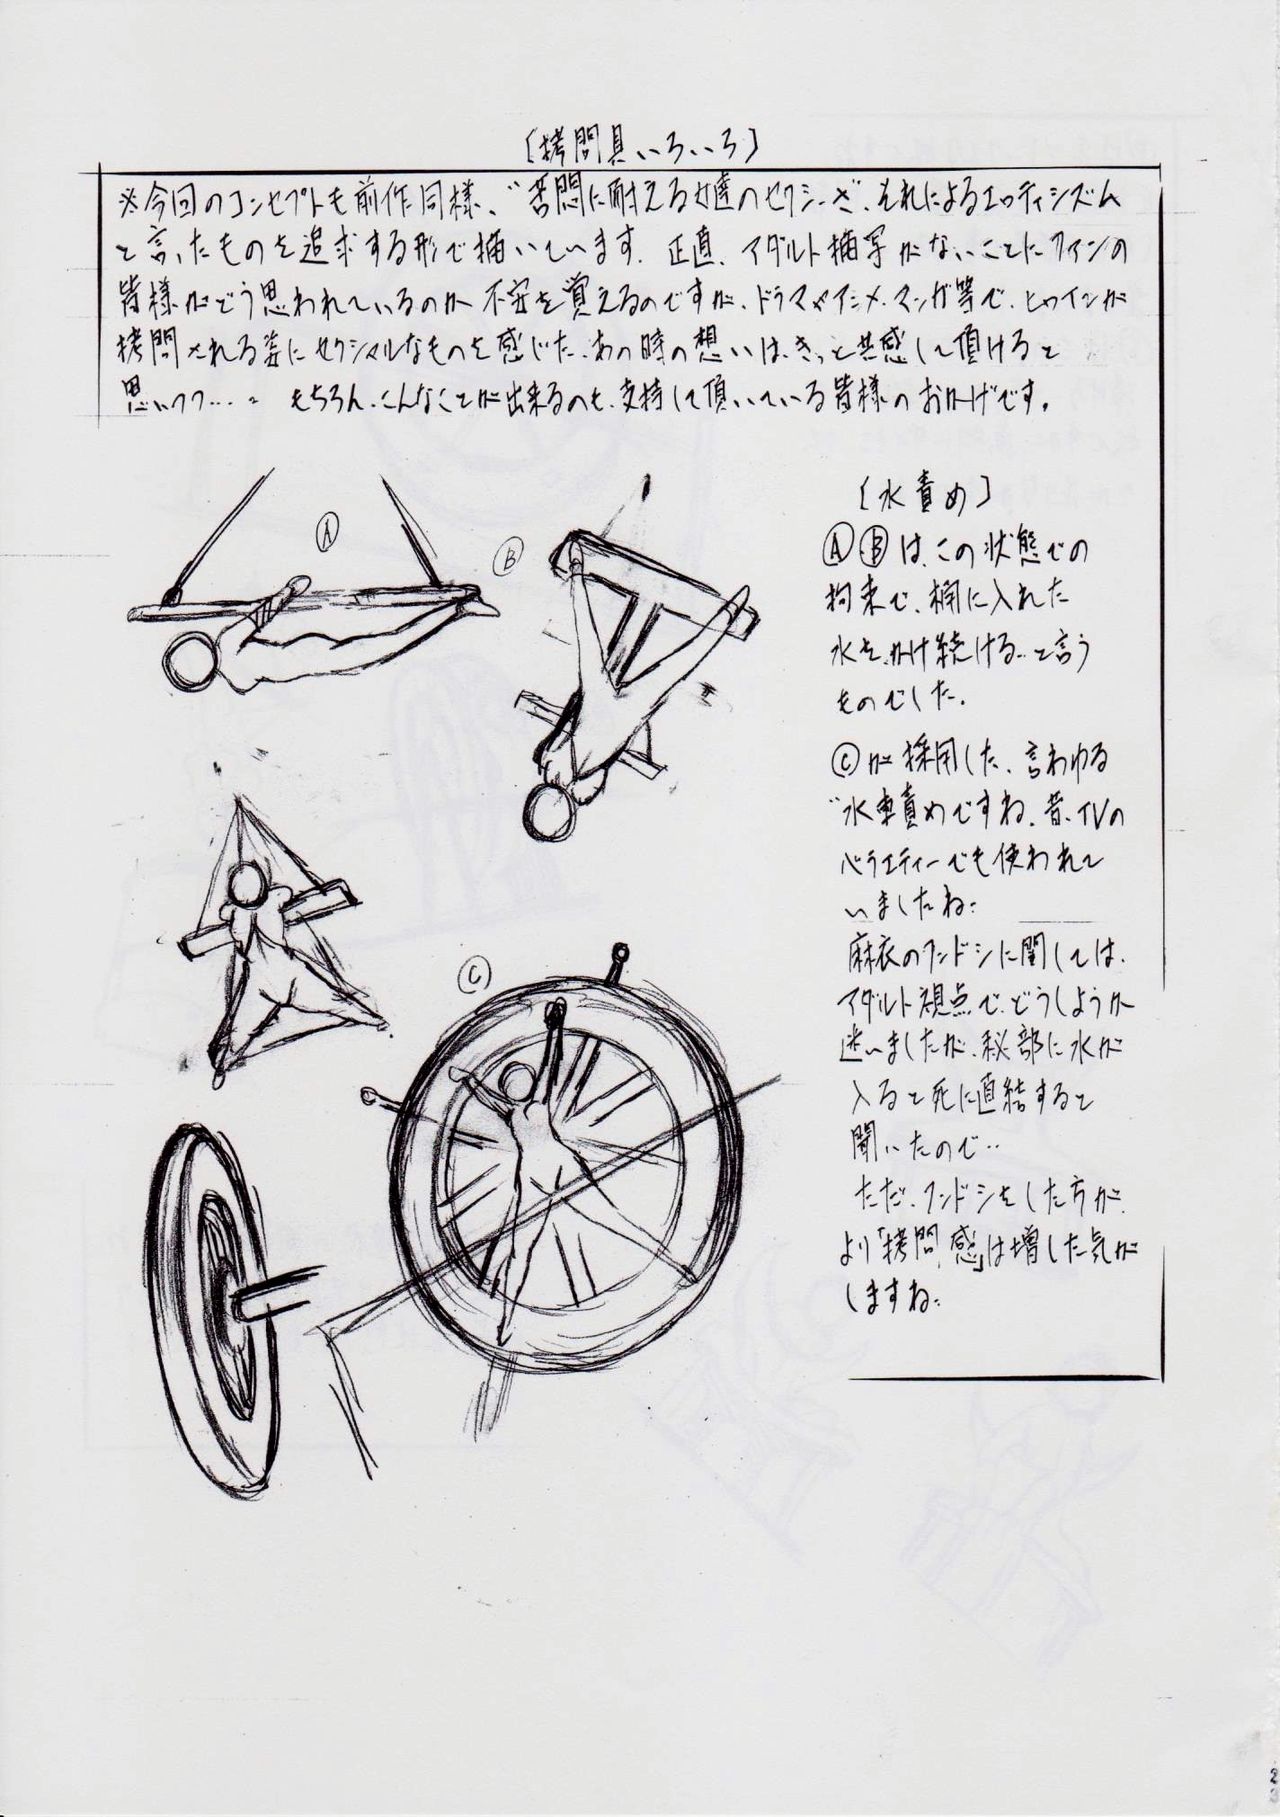 〔拷問具いろいろ〕
※今回のコンセプトも前作同様、"苦悶に耐える女達のセクシーさ、それによるエロティシズム
と言ったものを追求する形で描いています。正直、アダルト描写がないことにファンの
皆様がどう思われているのか不安を覚えるのですが、ドラマやアニメ、マンガ等で、ヒロインが
拷問される姿にセクシャルなものを感じた、あの時の想いは、きっと共感して頂けると
思いつつ…。もちろん、こんなことが出来るのも、支持して頂いている皆様のおかげです。
〔水責め〕
ⒶⒷは、この状態での
拘束で、桶に入れた
水を、かけ続ける…と言う
ものでした。
Ⓒが採用した、言わゆる
"水車責めですね、昔、TVの
バラエティーでも使われて
いましたね…
麻衣のフンドシに関しては、
アダルト視点で、どうしようか
迷いましたが、秘部に水が
入ると死に直結すると
聞いたので…
ただ、フンドシをした方が、
より「拷問感」は増した気が
しますね…
Ⓐ
Ⓑ
Ⓒ